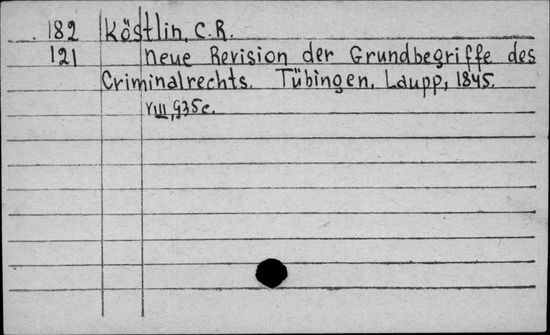 182 Köstlin, C.R.
121 Neue Revision der Grundbegriffe des
Criminalrechts. Tübingen, Laupp, 1845.
VIII, 935 c.